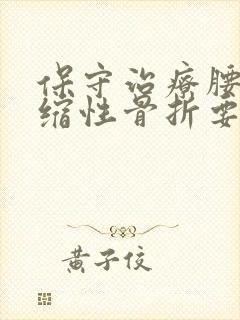 保守治疗腰
缩性骨折要
黄子佼